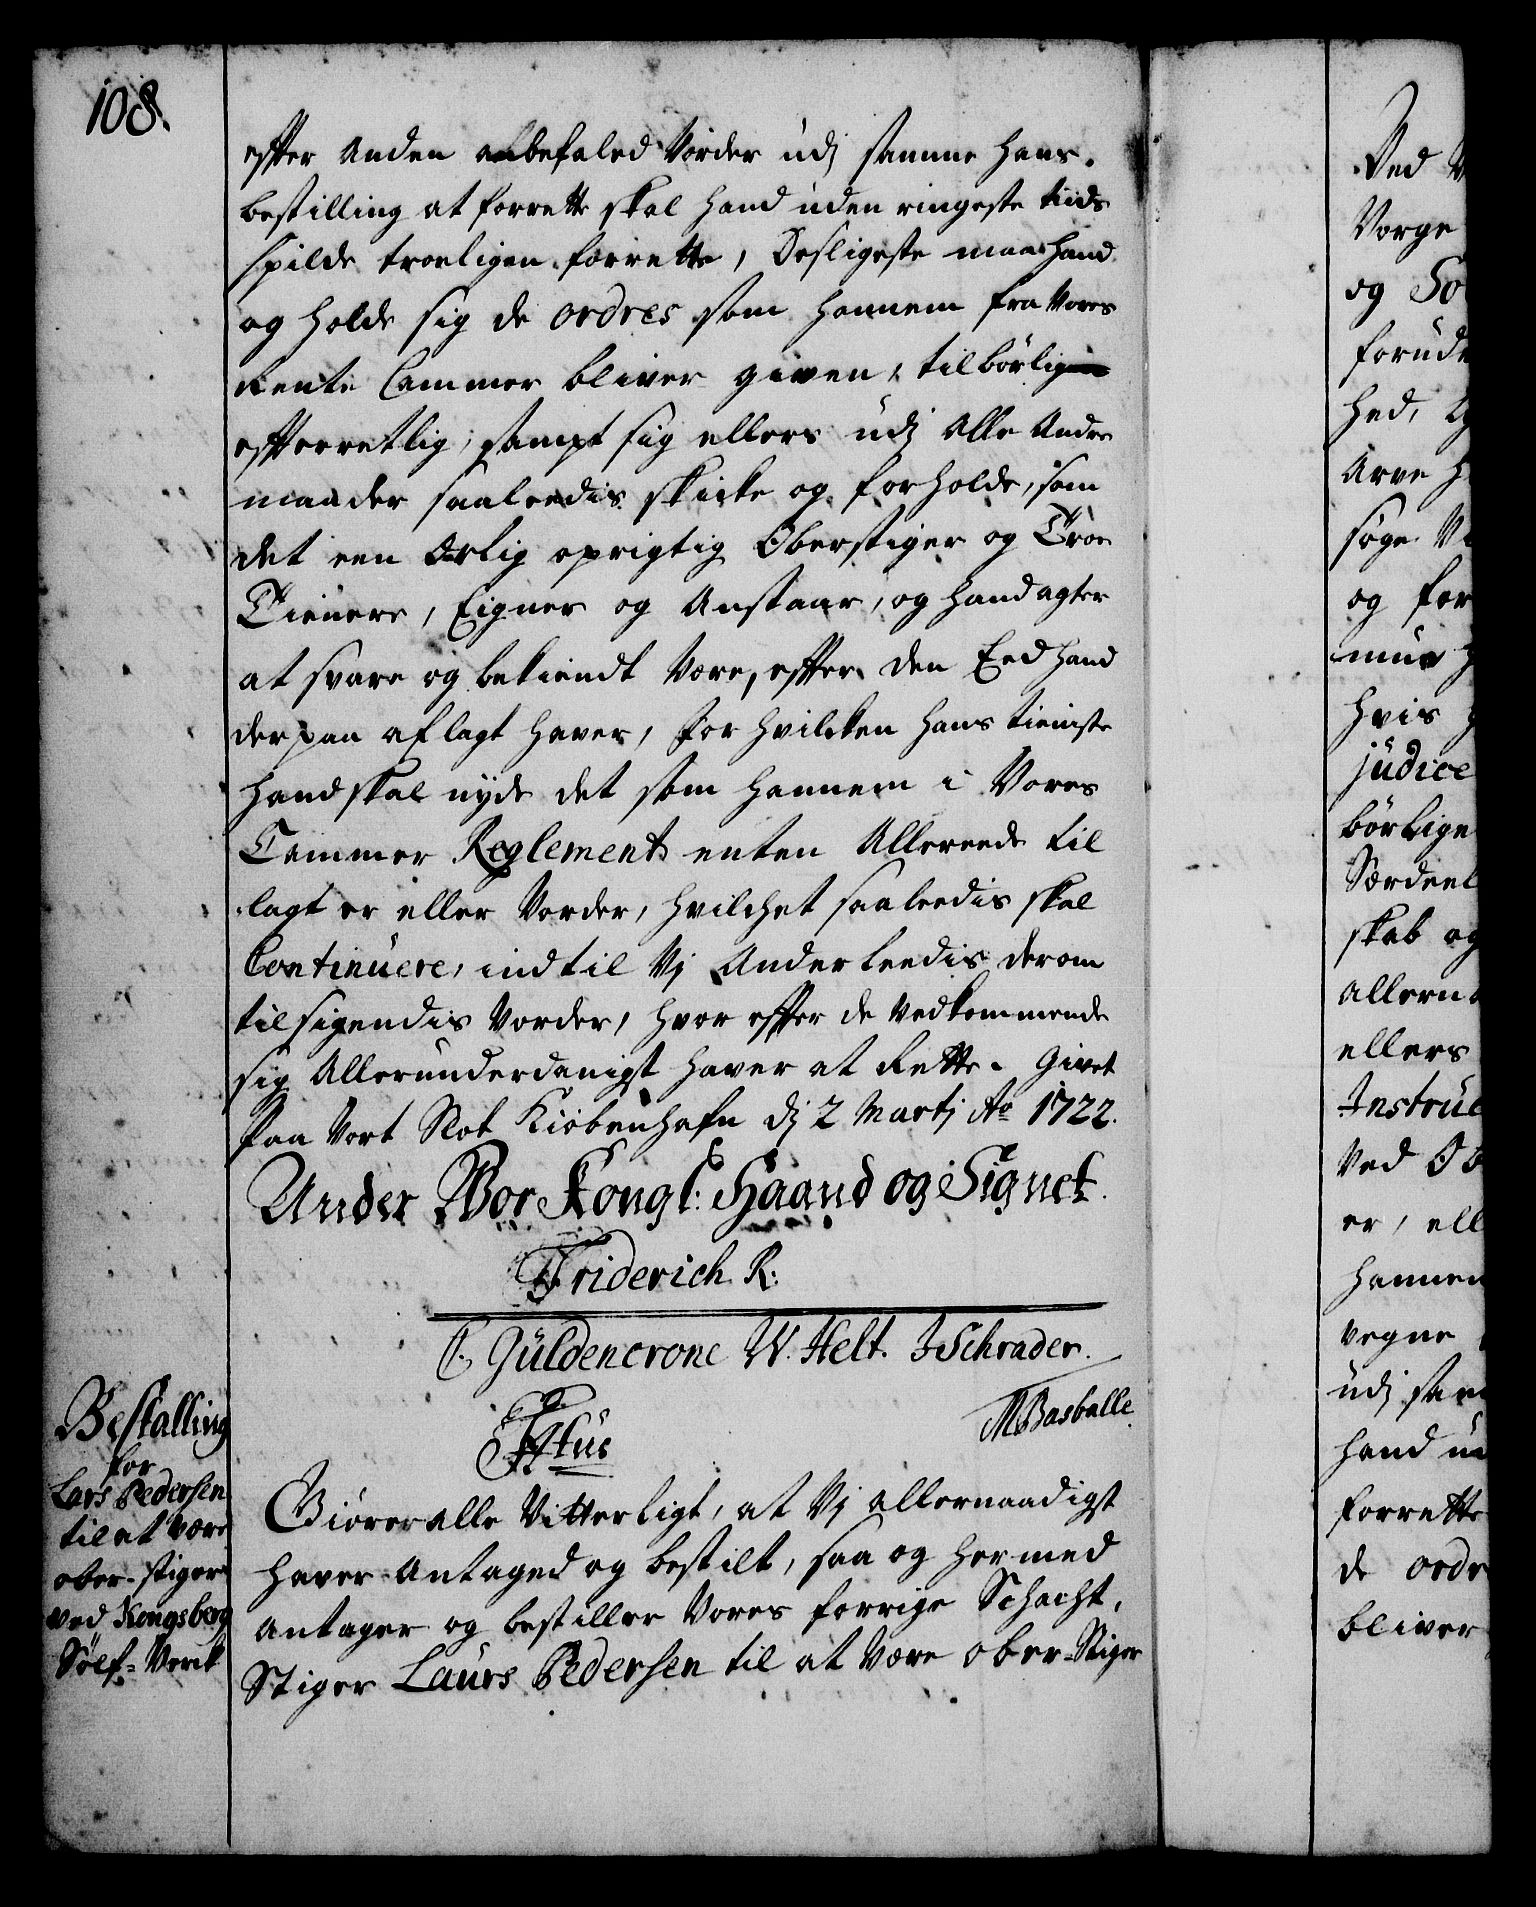 108.
effter Anden anbefaled Vorder udj samme hans
bestilling at forrette skal hand uden ringeste tiids
spilde troeligen forrette, Desligeste maa hand
og holde sig de ordres som hannem fra Vores
Rente Cammer bliver given, tilbörlig
efterretlig, sampt sig ellers udj Alle Andre
maader saaleedis skicke og forholde, som
det een Ærlig oprigtig Oberstiger og Troe
Tienere, Eigner og Anstaar, og hand agter
at svare og bekiendt være, effter den Eed hand
derpaa aflagt haver, for hvilcken hans tieniste
hand skal nyde det som hannem i Vores
Cammer Reglement enten Allereede til
lagt er eller Vorder, hvilchet saaleedis skal
Continuere, indtil Vj Anderleedis derom
tilsigendis Vorder, hvor effter de vedkommende
sig Allerunderdanigst haver at Rette. Givet
Paa Vort Slot Kiöbenhafn dj 2 Martj Ao 1722.
Under Vor Kongl: Haand og Signet.
Friderich R:
C. Güldencrone W. Helt. J Schrader.
M Basballe.
Bestalling
for
Lars Pedersen
til at være
ober-stiger
ved Kongsberg
Sölf-Verck
Titus
Giörer alle Vitterligt, at Vj allernaadigst
haver Antaged og bestilt, saa og hermed
antager og bestiller Vores forrige Schacht,
Stiger Laurs Pedersen til at være ober-Stiger
Ved
Vorge
og So
forud
hed,
Arve
søge
og for
hvis
judice
börlige
Særdeel
skab og
allern
ellers
Instruc
ved Ob
er, ell
hannem
vegne
udj sam
hand
forrette
de ordr
bliver